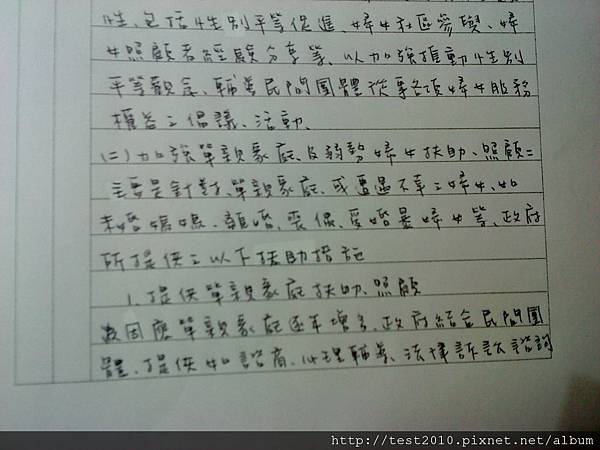 性、包括性別平等促進、婦女社區參與、婦
女照顧者經驗分享等、以加強推動性別
平等觀念、輔導民間團體從事各項婦女服務
權益之倡議、活動、
(二)加強單親家庭及弱勢婦女扶助、照顧:
主要是針對、單親家庭、或遭遇不幸之婦女、如
未婚媽媽、離婚、喪偶、受婚暴婦女等、政府
所提供之以下扶助措施
1.提供單親家庭扶助、照顧
為因應單親家庭逐年增多、政府結合民間團
體、提供如諮商、心理輔導、法律訴訟諮詢
http://test2010.pixnet.net/album